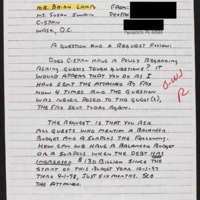 MR. BRIAN LAMB
FROM:
MS. SUSAN SWAIN
C-SPAN
WASH, D.C.
A QUESTION AND A REQUEST FOLLOW:
DOES C-SPAN HAVE A POLICY REGARDING
ASKING GUESTS TOUGH QUESTIONS? IT
WOULD APPEAR THAT YOU DO AS I
HAVE SENT THE ATTACHED BY FAX
NOW 4 TIMES AND THE QUESTION
WAS NEVER POSED TO THE GUEST(S).
THE FAX SENT TODAY AGAIN.
THE REQUEST IS THAT YOU ASK
ALL GUESTS WHO MENTION A BALANCED
BUDGET AND A SURPLUS THE FOLLOWING:
HOW CAN WE HAVE A BALANCED BUDGET
OR A SURPLUS WHEN THE DEBT HAS
INCREASED $130 BILLION SINCE THE
START OF THIS BUDGET YEAR 10-1-97
THRU 4-1-98, JUST SIX MONTHS. SEE
THE ATTACHED.